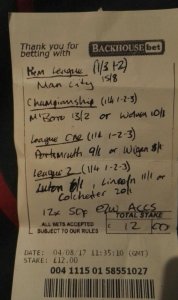 Thank you for
betting with BACKHOUSE bet
Prem League (1/3 1-2)
Man City 15/8
Championship (1/4 1-2-3)
M'Boro 13/2 or Wolves 10/1
League One (1/4 1-2-3)
Portsmouth 9/1 or Wigan 8/1
League 2 (1/4 1-2-3)
Luton 6/1, Lincoln 11/1 or
Colchester 20/1
12x 50p e/w ACCS
ALL BETS ACCEPTED
SUBJECT TO OUR RULES
TOTAL STAKE
£ 12 00
DATE: 04/08/17 11:35:10 (GMT)
STAKE: £12.00
004 1115 01 58551027